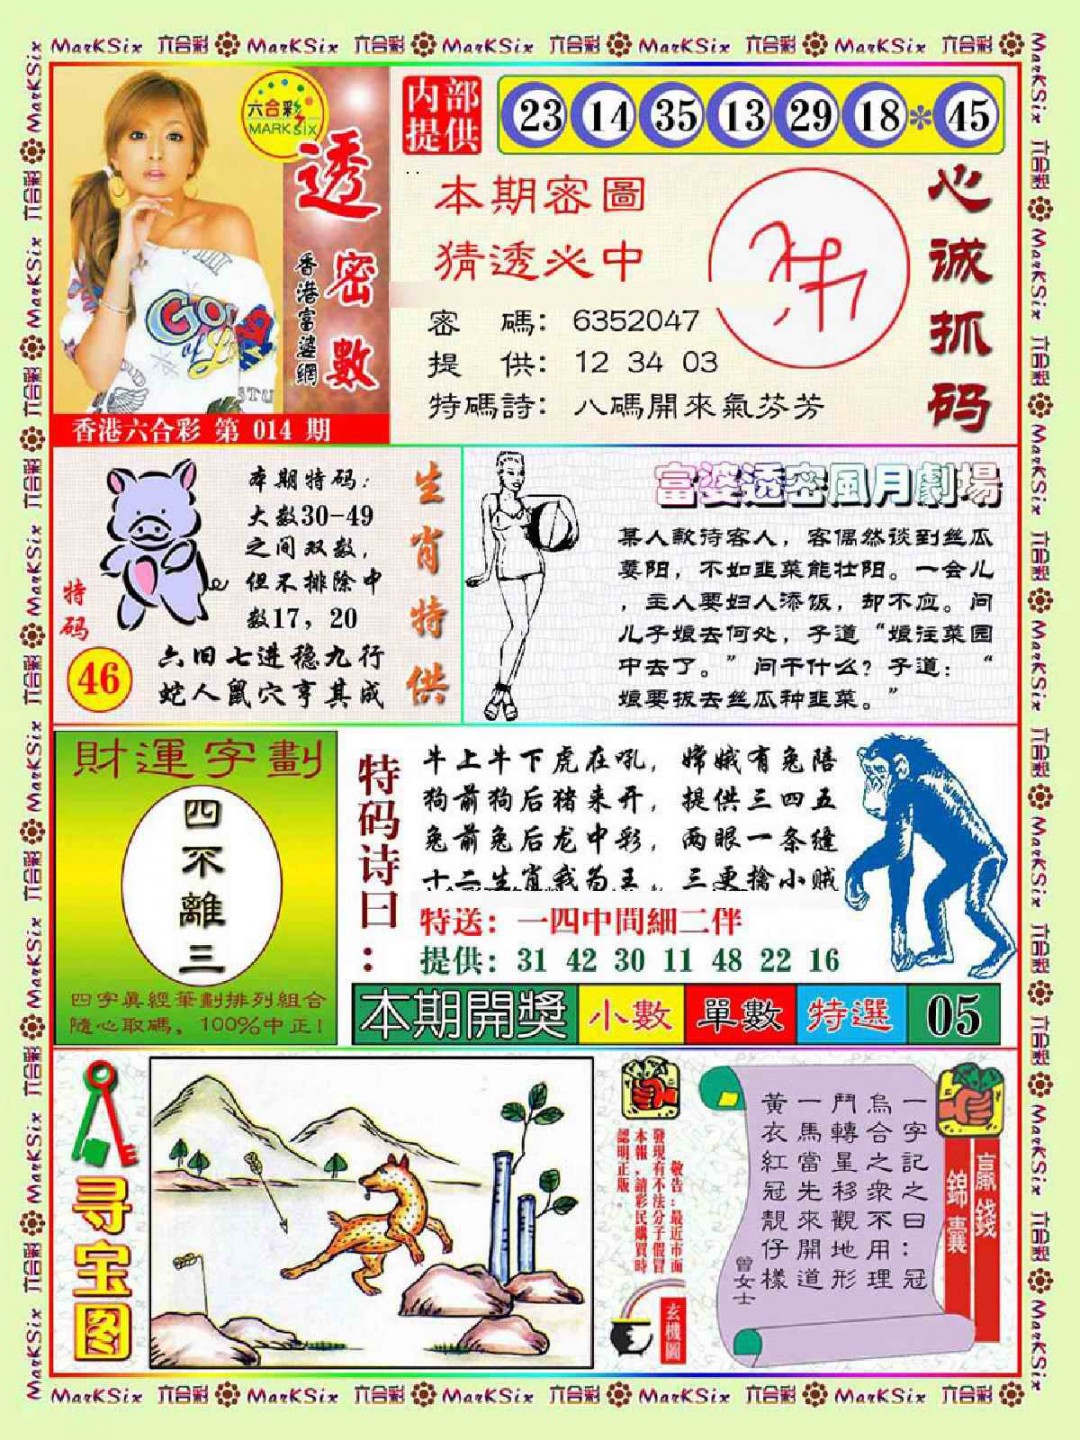 MarKSix 六合彩 MarKSix 六合彩 MarKSix 六合彩 MarKSix 六合彩 MarKSix 六合彩
六合彩
MARK SIX
透密數
香港富婆網
香港六合彩 第 014 期
内部
提供
23 14 35 13 29 18 * 45
本期密圖
猜透必中
密 碼: 6352047
提 供: 12 34 03
特碼詩: 八碼開來氣芬芳
心诚抓码
本期特码:
大数30-49
之间双数,
但不排除中
数17, 20
特码
46
六旧七进稳九行
蛇人鼠穴亨其成
生肖特供
富婆透密風月劇場
某人款待客人, 客偶然谈到丝瓜
萎阳, 不如韭菜能壮阳。一会儿
, 主人要妇人添饭, 却不应。问
儿子娘去何处, 子道“娘往菜园
中去了。”问干什么? 子道: “
娘要拔去丝瓜种韭菜。”
財運字劃
四不離三
四字眞經筆劃排列組合
隨心取碼, 100%中正!
特码诗曰:
牛上牛下虎在吼, 嫦娥有兔陪
狗前狗后猪来开, 提供三四五
兔前兔后龙中彩, 两眼一条缝
十二生肖我为王, 三更擒小贼
特送: 一四中間細二伴
提供: 31 42 30 11 48 22 16
本期開獎 小數 單數 特選 05
寻宝图
敬告:最近市面
發現有不法分子假冒
本報,請彩民購買時
認明正版。
玄機圖
贏錢
錦囊
一字記之曰:冠
烏合之衆不用理
鬥轉星移觀地形
一馬當先來開道
黃衣紅冠靚仔樣
曾女士
MarKSix 六合彩 MarKSix 六合彩 MarKSix 六合彩 MarKSix 六合彩 MarKSix 六合彩